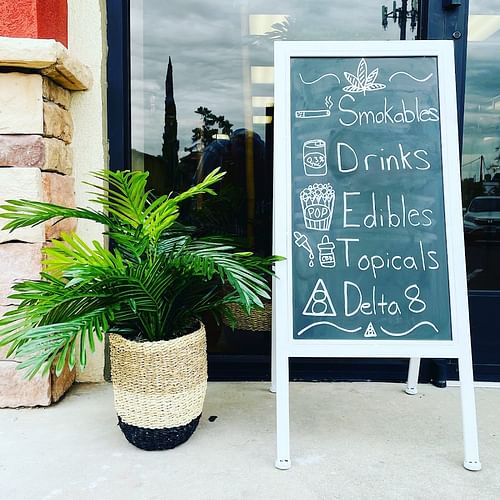 Smokables
Drinks
Edibles
POP
Topicals
8 Delta 8